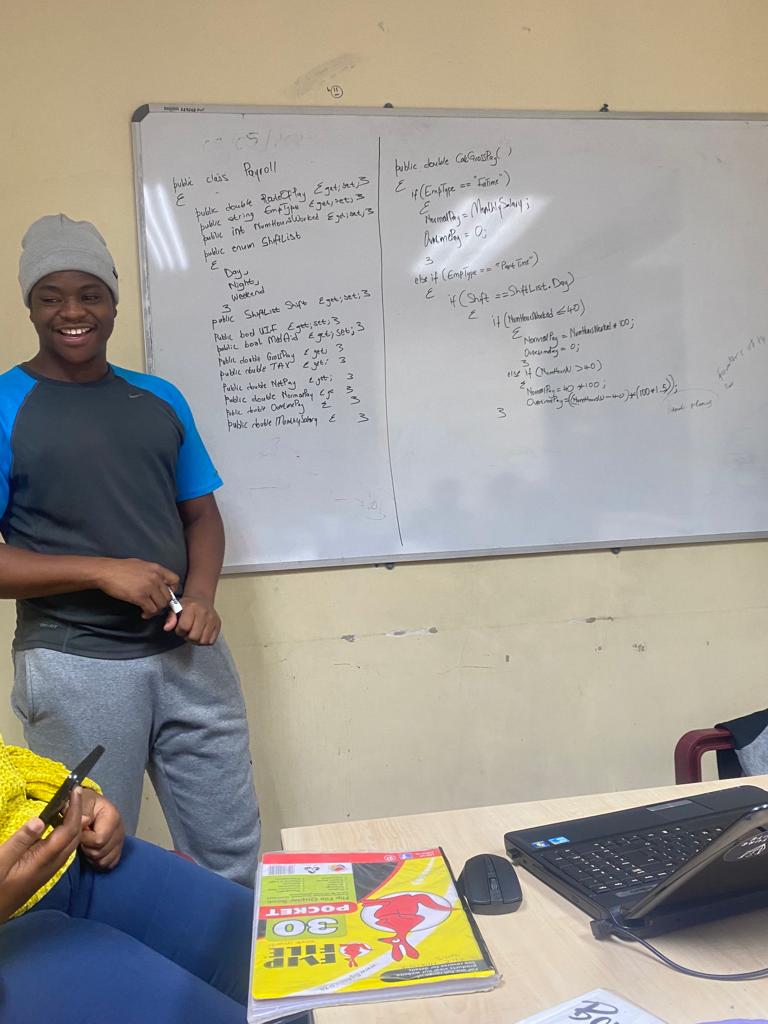 public class Payroll
{
public double RateOfPay { get; set; }
public string EmpType { get; set; }
public int NumHoursWorked { get; set; }
public enum ShiftList
{
Day,
Night,
Weekend
}
public ShiftList Shift { get; set; }
public bool UIF { get; set; }
public bool MedAid { get; set; }
public double GrossPay { get; }
public double TAX { get; }
public double NetPay { get; }
public double NormalPay { }
public double OvertimePay { }
public double MonthlySalary { }
public double CalcGrossPay( )
{ if (EmpType == "FullTime")
{
NormalPay = MonthlySalary;
OvertimePay = 0;
}
else if (EmpType == "PartTime")
{ if (Shift == ShiftList.Day)
{ if (NumHoursWorked ≤ 40)
{ NormalPay = NumHoursWorked * 100;
OvertimePay = 0;
}
else if (NumHoursW > 40)
{
NormalPay = 40 * 100;
OvertimePay = (NumHoursW - 40) * (100 * 1.5);
}
30
POCKET
FLIP
FILE